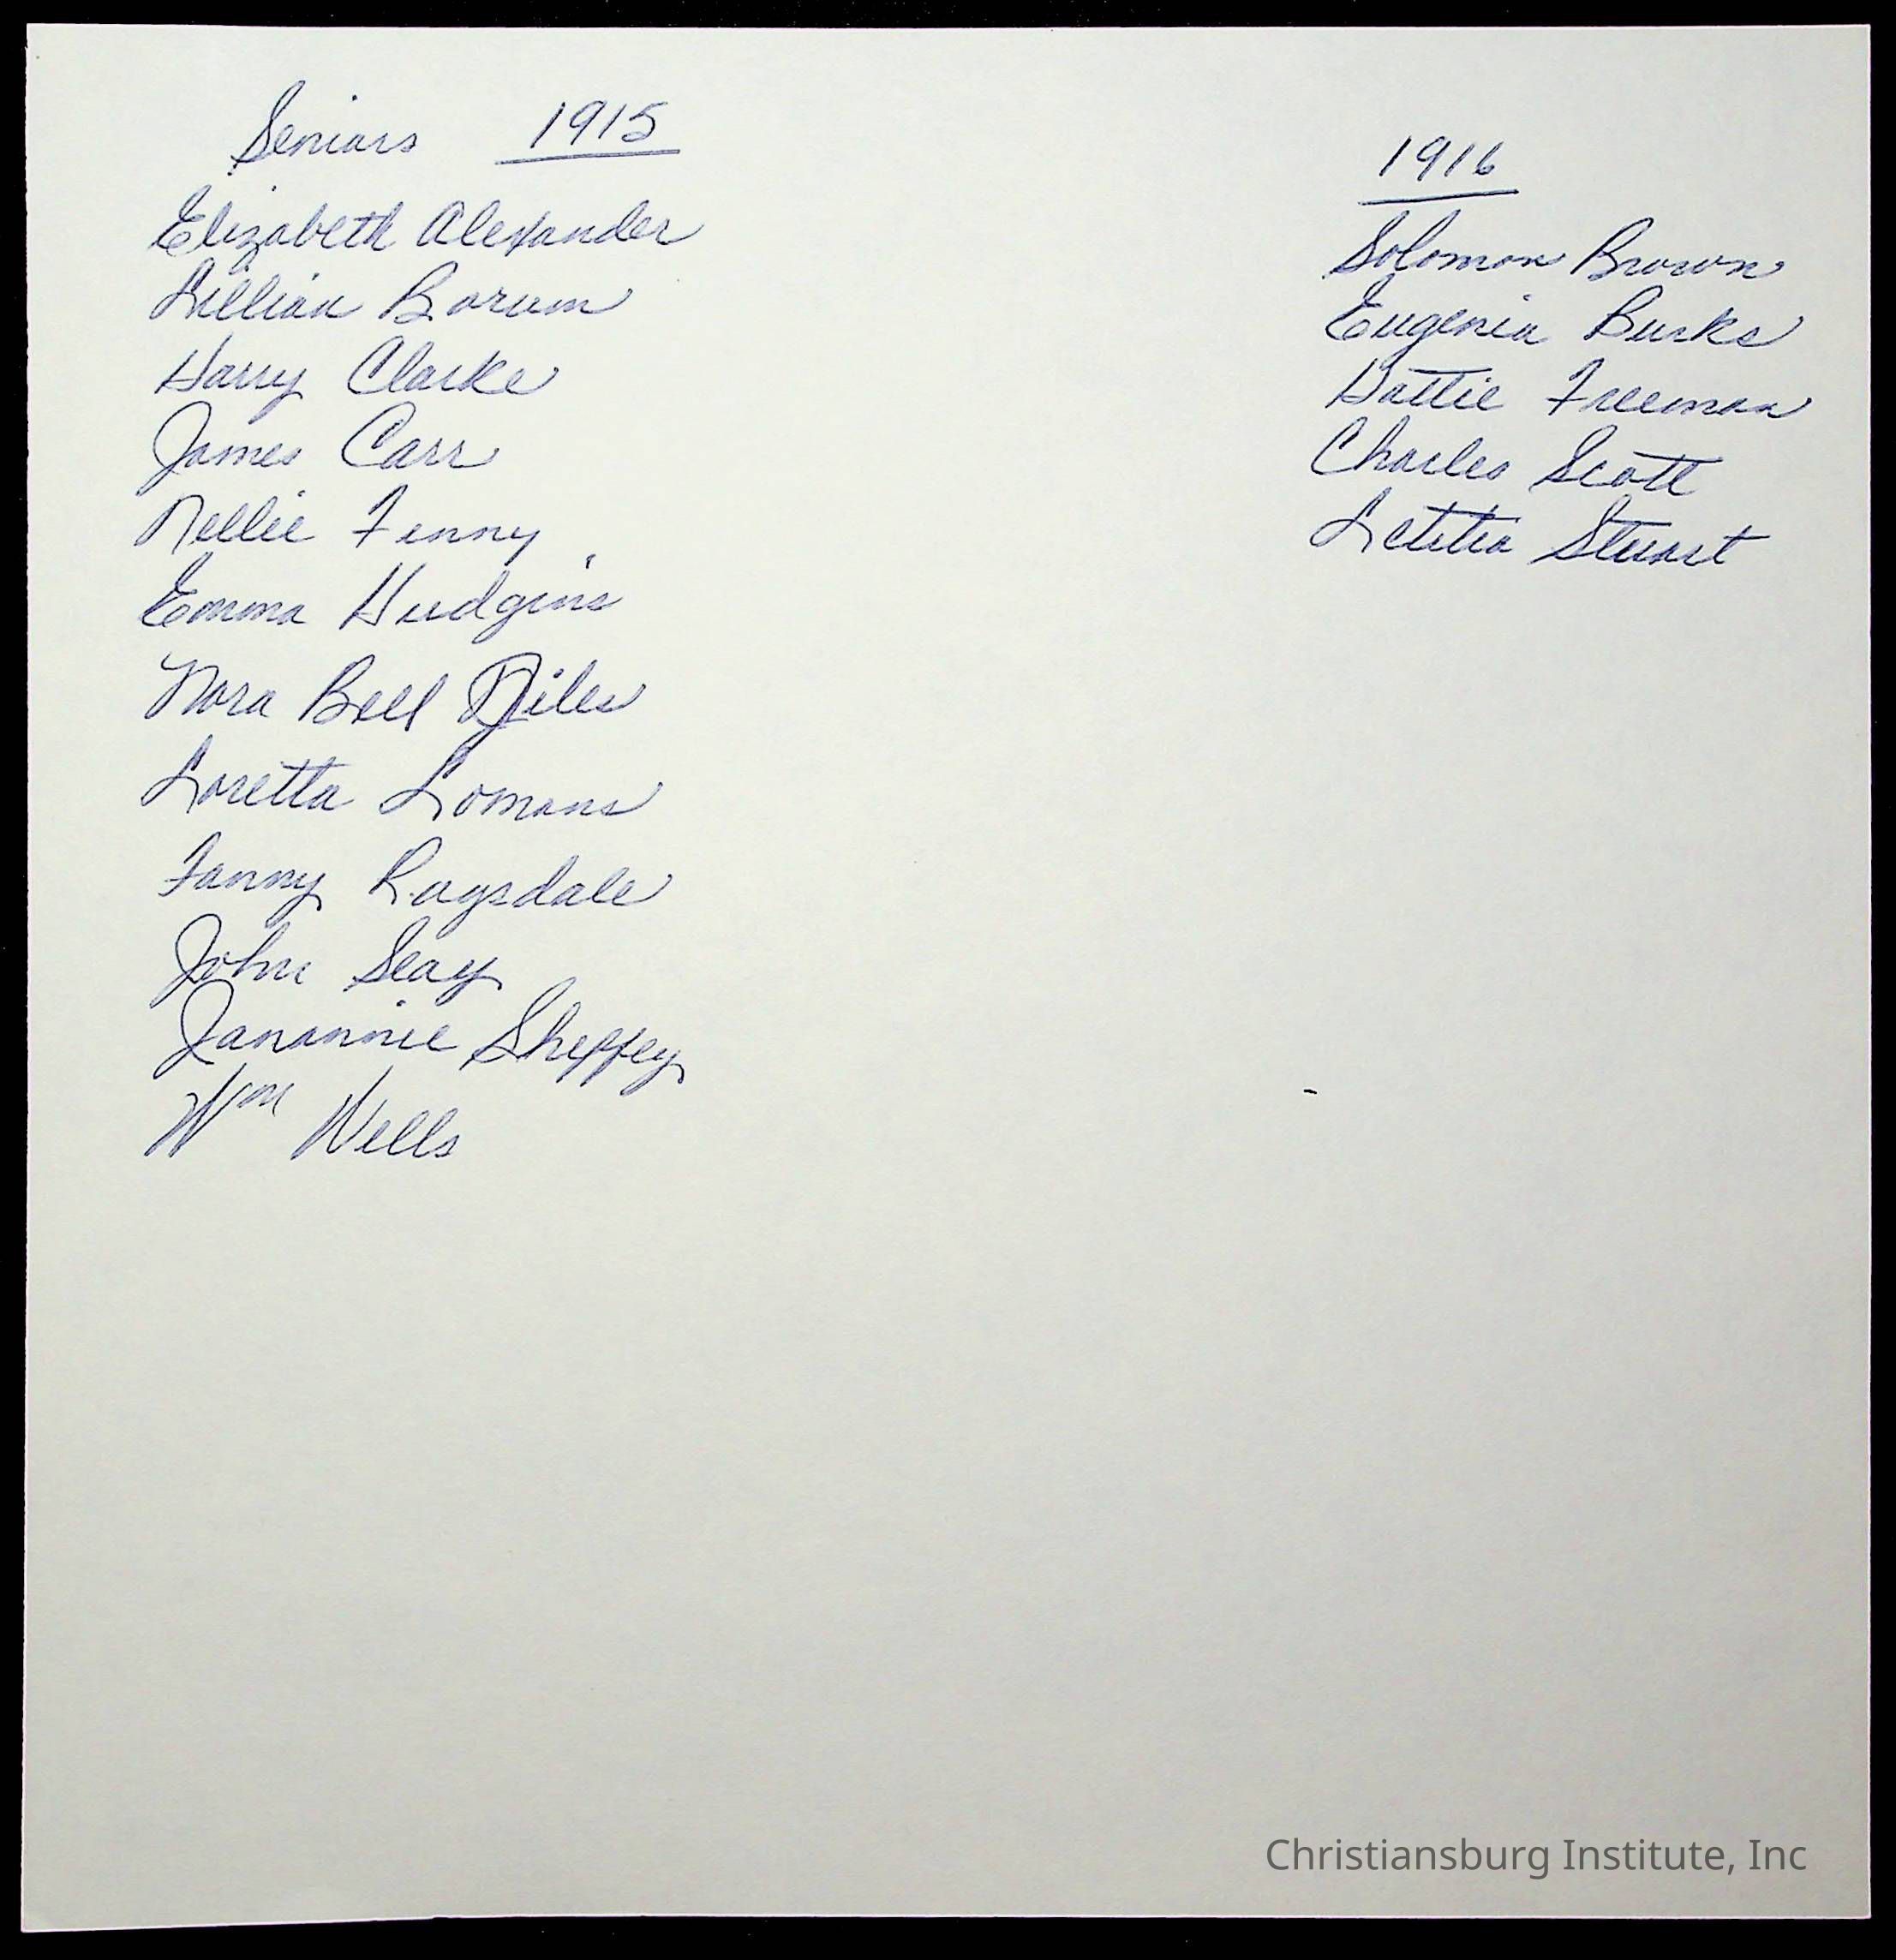 Seniors 1915
Elizabeth Alexander
Lillian Borum
Harry Clarke
James Carr
Nellie Finny
Emma Hudgins
Nora Bell
Loretta Lomans
Fanny Ragsdale
John Seay
Janannie Sheffey
Wm Wells
1916
Solomon Brown
Eugenia Burks
Hattie Freeman
Charles Scott
Letitia Stuart
Christiansburg Institute, Inc